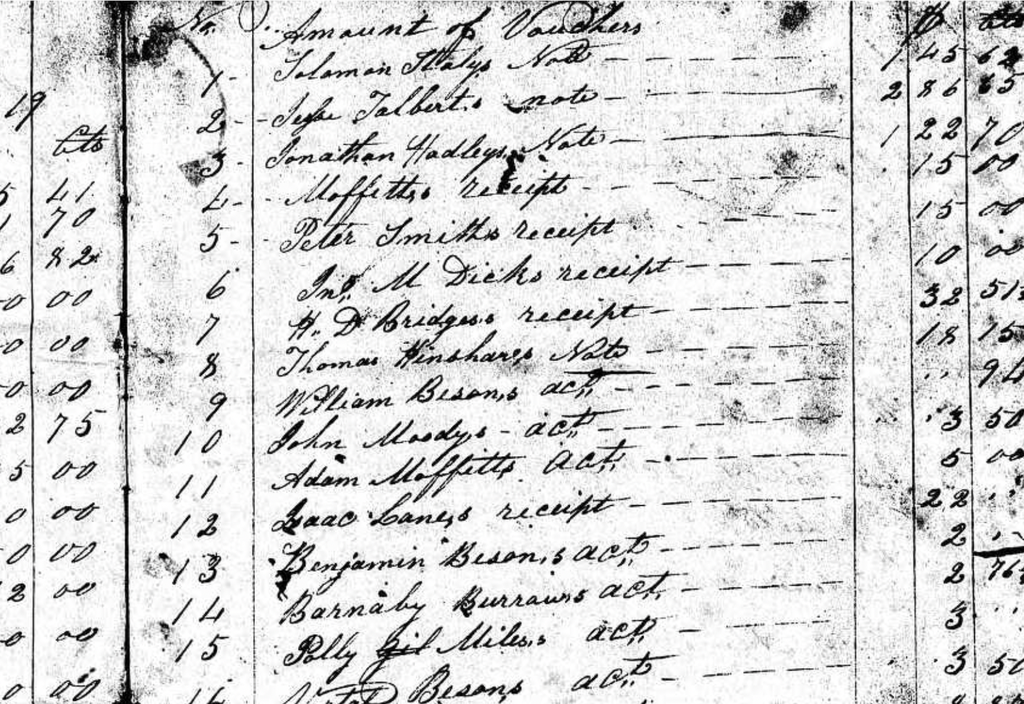 19
Cts
5 41
1 70
6 82
0 00
0 00
0 00
2 75
5 00
0 00
0 00
2 00
0 00
0 00
No. Amount of Vouchers $ Cts
1 - Solomon Stalys Note 1 45 62
2 - Jesse Talbert,s note 2 86 65
3 - Jonathan Hadleys, Note 1 22 70
4 - Moffett,s receipt 15 00
5 - Peter Smiths receipt 15 00
6 Jn,, M Dicks receipt 10 00
7 H,, D Bridges,s receipt 32 51½
8 Thomas Hinshares Note 18 15
9 William Beson,s act,, " 94
10 John Moody,s - act,, 3 50
11 Adam Moffetts, Act,, 5 00
12 Isaac Lane,s receipt 22 "
13 Benjamin Beson,s act,, 2 "
14 Barnaby Burrows act, 2 76½
15 Polly Miles,s act,, 3 "
Besons act,, 3 50